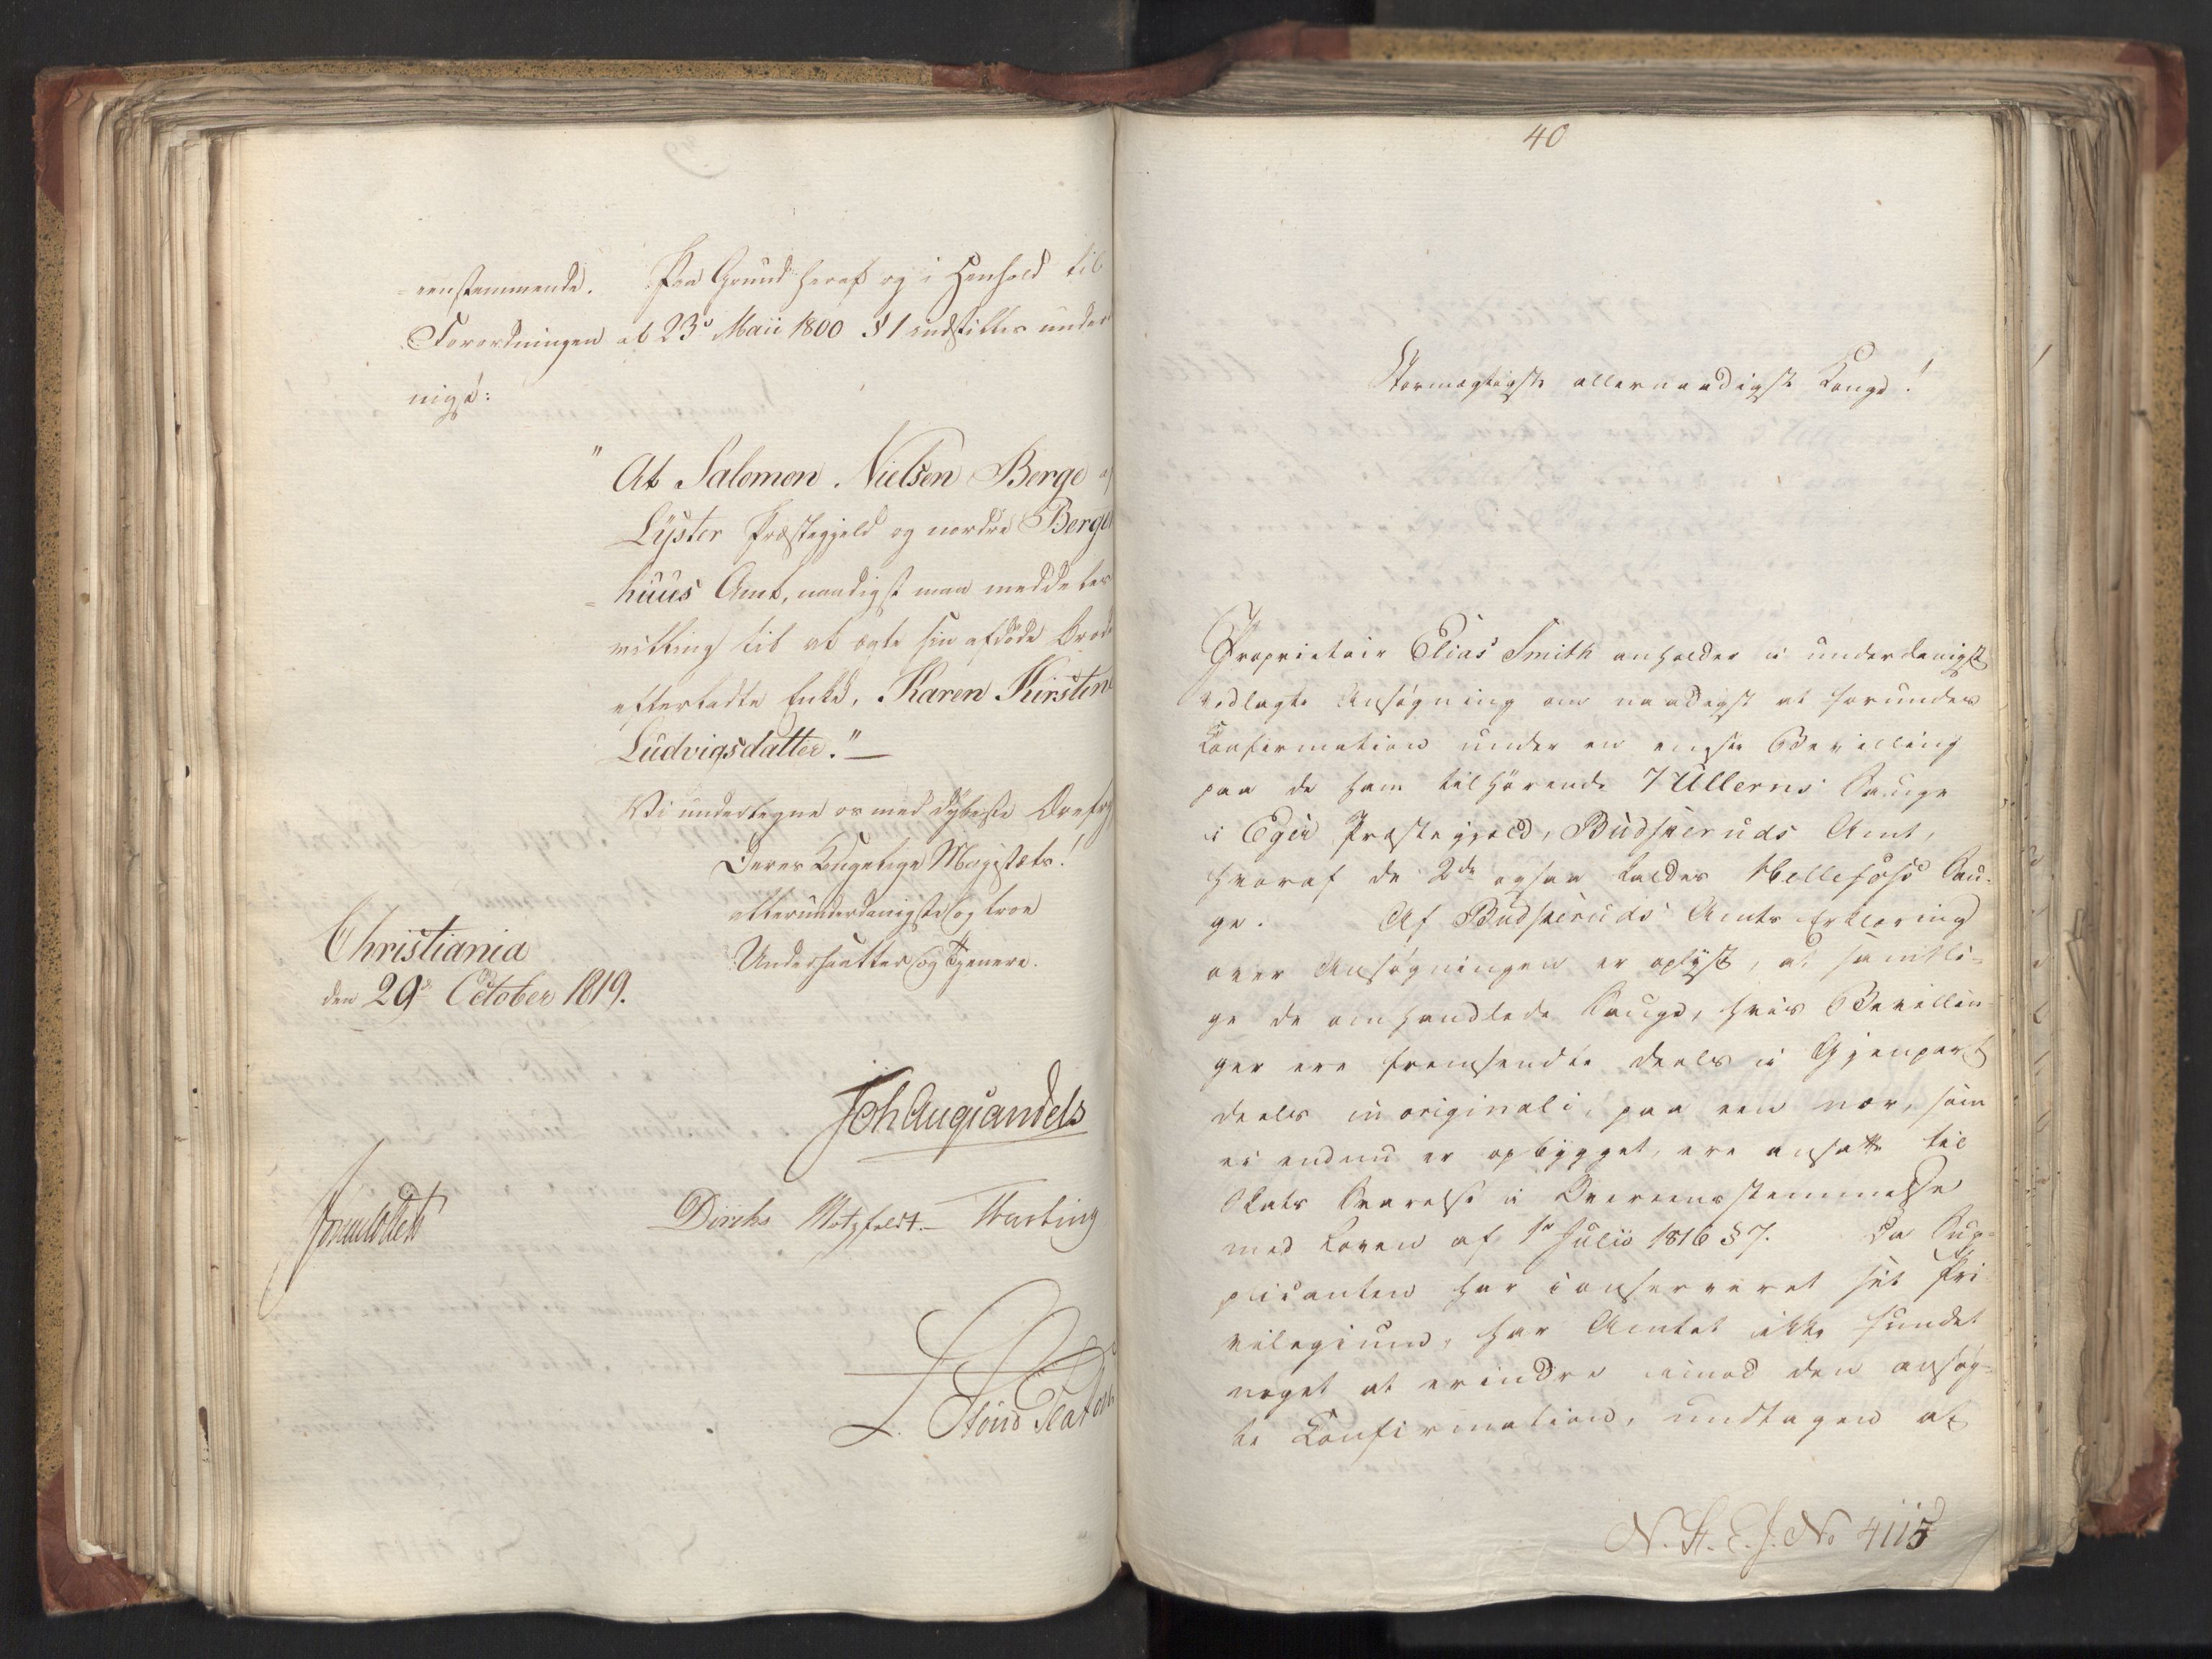 eenstemmende. Paa Grund heraf og i Henhold til
Forordningen af 23de Maii 1800 § 1 indstilles under
nigst:
"At Salomon Nielsen Berge af
Lyster Præstegjeld og nordre Bergen
=huus Amt, naadigst maa meddeles
villing til at ægte sin afdøde Broders
efterladte Enke, Karen Kirstine
Ludvigsdatter."—
Vi undertegne os med dybeste Ærefrygt
Deres Kongelige Majestæts!
allerunderdanigste og troe
Undersaatter og Tjenere.
Christiania
den 29de October 1819.
Joh Aug Sandels
Diriks Motzfeldt.— Treschow
L. Stoud Platou
40
Stormægtigste allernaadigste Konge!
Proprietair Elias Smith anholder i underdanigst
vedlagte Ansøgning om naadigst at forundes
Confirmation under en eneste Bevilling
paa de ham tilhørende 7 Ullerns Sauge
i Eger Præstegjeld, Budskeruds Amt,
hvoraf de 2de ogsaa kaldes Hellefoss Sau-
ge. Af Budskeruds Amts Erklæring
over Ansøgningen er oplyst, at samtli-
ge de omhandlede Sauge, hvis Bevillin-
ger ere fremsendte deels i Gjenpart
deels in originali, paa een nær, som
ei endnu er opbygget, ere ansatte til
Skats Svarelse i Overeensstemmelse
med Loven af 1ste Julii 1816 § 7. Da Sup-
plicanten har conserveret sit Pri
vilegium, har Amtet ikke fundet
noget at erindre imod den ansøg-
te Confirmation, undtagen at
N. St. E. J. No 4115